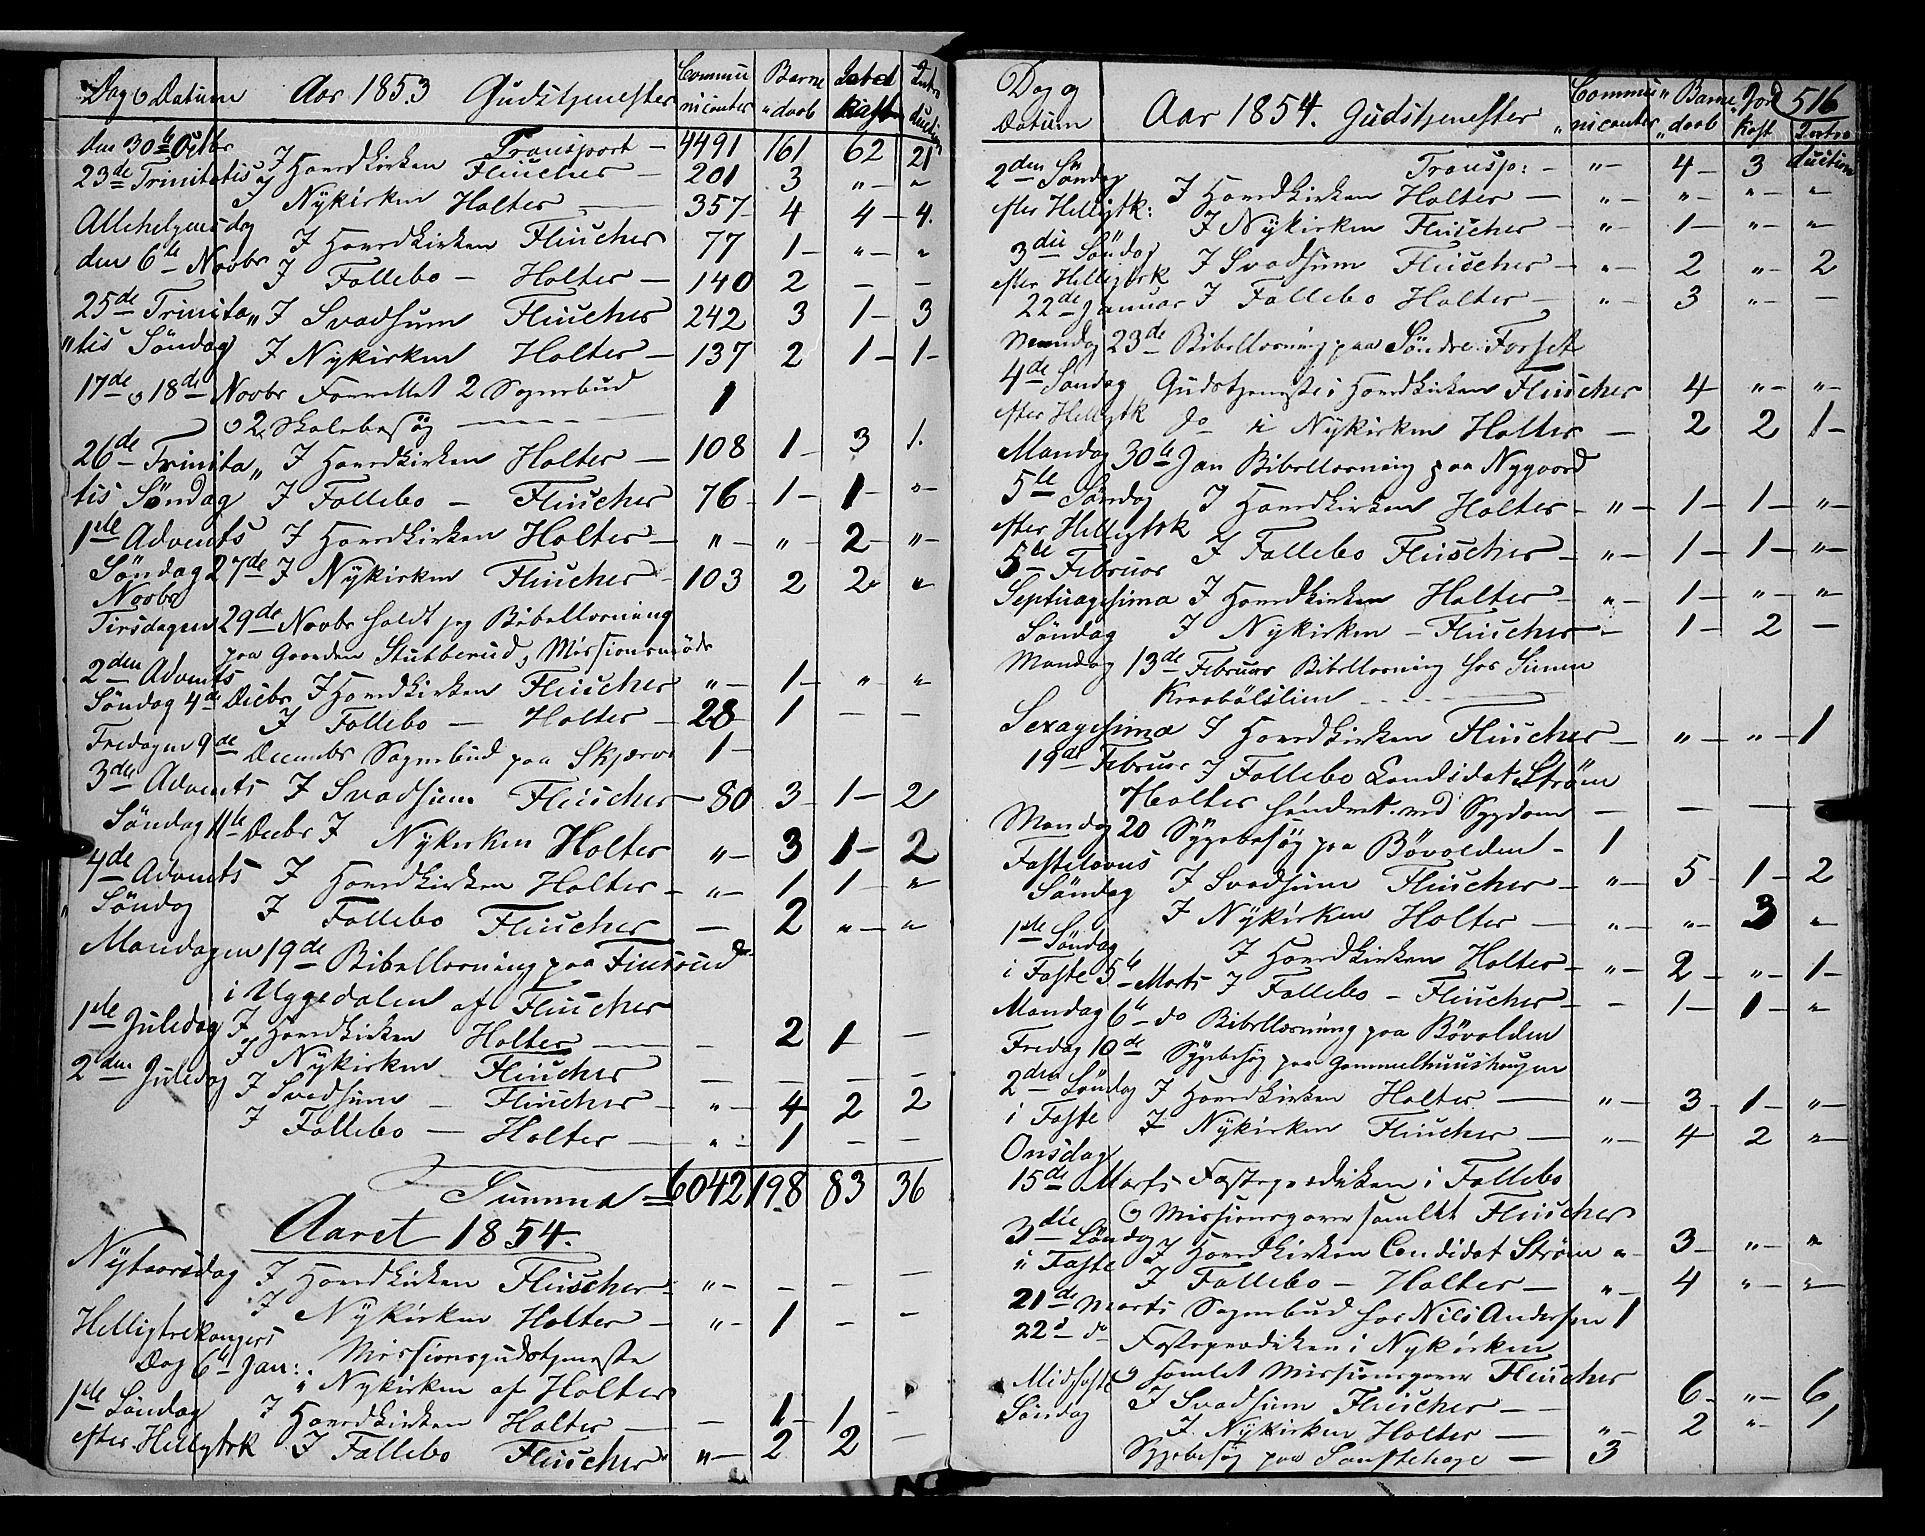 Dag o Datum Aar 1853 Gudstjenester Commu nicanter Barne daab Jord kast Intro duction
den 30te Octbr Transport — 4491 161 62 21
23de Trinitatis I Hovedkirken Fleischer — 201 3 " — "
I Nykirken Holter — 357 4 4 — 4.
Allehelgensdag I Hovedkirken Fleischer 77 1 — " — "
den 6te Novbr I Follebo — Holter — 140 2 — —
25de Trinita„ I Svadsum Fleischer 242 3 1 — 3
„tis Søndag I Nykirken Holter — 137 2 1 — 1 —
17de o 18de Novbr Forrettet 2 Sognebud 1
o 2 Skolebesøg
26de Trinita„ I Hovedkirken Holter — 108 1 — 3 1.
tis Søndag I Follebo — Fleischer 76 — 1 — 1 — " —
1ste Advents I Hovedkirken Holter — " — " — 2 — " —
Søndag 27de I Nykirken Fleischer 103 2 2 "
Novbr
Tirsdagen 29de Novbr holdt jeg Bibellæsning
paa Gaarden Stubberud, Missionsmøde
2den Advents
Søndag 4de Decbr I Hovedkirken Fleischer " — 1 — " "
I Follebo — Holter — 28 — 1 — —
Fredagen 9de Decembr Sognebud paa Skjærve 1 —
3die Advents I Svadsum Fleischer — 80 3 — 1 — 2
Søndag 11te Decbr I Nykirken Holter " — 3 1 — 2
4de Advents I Hovedkirken Holter — " — 1 1 — "
Søndag I Follebo Fleischer — 2 " — "
Mandagen 19de Bibellæsning paa
i Uggedalen af Fleischer
1ste Juledag I Hovedkirken Holter — 2 1 —
I Nykirken Fleischer — — — —
2den Juledag I Svadsum — Fleischer — " — 4 2 2
I Follebo — Holter — " — 1 — —
Summa = 6042 198 83 36
Aaret 1854.
Nytaarsdag I Hovedkirken Fleischer " — — — —
I Nykirken Holter — " — 1 — —
Helligtrekongers
Dag 6te Jan: Missionsgudstjeneste
i Nykirken af Holter
1ste Søndag I Hovedkirken Holter — — 1 — 1 —
efter Helligtrk I Follebo Fleischer " — 2 2 —
Dag og Datum Aar 1854. Gudstjenester Commu„ nicanter Barne„ daab Jord kast 516 Intro duction
2den Søndag Transp: — " — 4 — 3
efter Helligtk: I Hovedkirken Holter — " — " — " — "
I Nykirken Fleischer — " — 1 — " — "
3die Søndag I Svadsum Fleischer — " — 2 " — 2
efter Helligtrk
22de Januar I Follebo Holter — " — 3 " — —
Mandag 23de Bibellæsning paa Søndre Forset
4de Søndag Gudstjeneste i Hovedkirken Fleischer 4 " — " —
efter Helligtk Do i Nykirken Holter — 2 2 1 —
Mandag 30te Jan Bibellæsning paa Nygaard
5te Søndag I Hovedkirken Holter — " — 1 — 1 — "
efter Helligtrk
5te Februar I Follebo Fleischer — " — 1 — 1 — " —
Septuagesima I Hovedkirken Holter — " — 1 — " — "
Søndag I Nykirken — Fleischer — 1 — 2 —
Mandag 13de Februar Bibellæsning hos Simen
Kraabølslien
Sexagesima I Hovedkirken Fleischer — " — " — 1
19de Februar I Follebo Candidat Strøm
Holter hindret ved Sygdom — — — —
Mandag 20 Sygebesøg paa Bøvolden — 1
Fastelavns
Søndag I Svadsum Fleischer — " — 5 — 1 — 2
I Nykirken Holter — " — " — 3 "
1ste Søndag I Hovedkirken Holter — " — 2 — " — 1 —
i Faste 5te Marts I Follebo — Fleischer — " 1 — 1 — "
Mandag 6te do Bibellæsning paa Bøvolden
Fredag 10de Sygebesøg paa Gammelhuushaugen
2den Søndag I Hovedkirken Holter — " — 3 — 1 — " —
i Faste I Nykirken Fleischer — " — 4 2 "
Onsdag
15de Marts Fasteprædiken i Follebo
o Missionsgaver samlet Fleischer
3die Søndag I Hovedkirken Candidat Strøm " 3 — " — "
i Faste I Follebo — Holter — " 4 " — " —
21de Marts Sognebud hos Nils Andersen 1
22de do Fasteprædiken i Nykirken
o samlet Missionsgaver Fleischer
Midfaste I Svadsum Fleischer — 6 — " — 6
Søndag I Nykirken Holter — " — 2 " — 1
Sygebesøg paa — 3